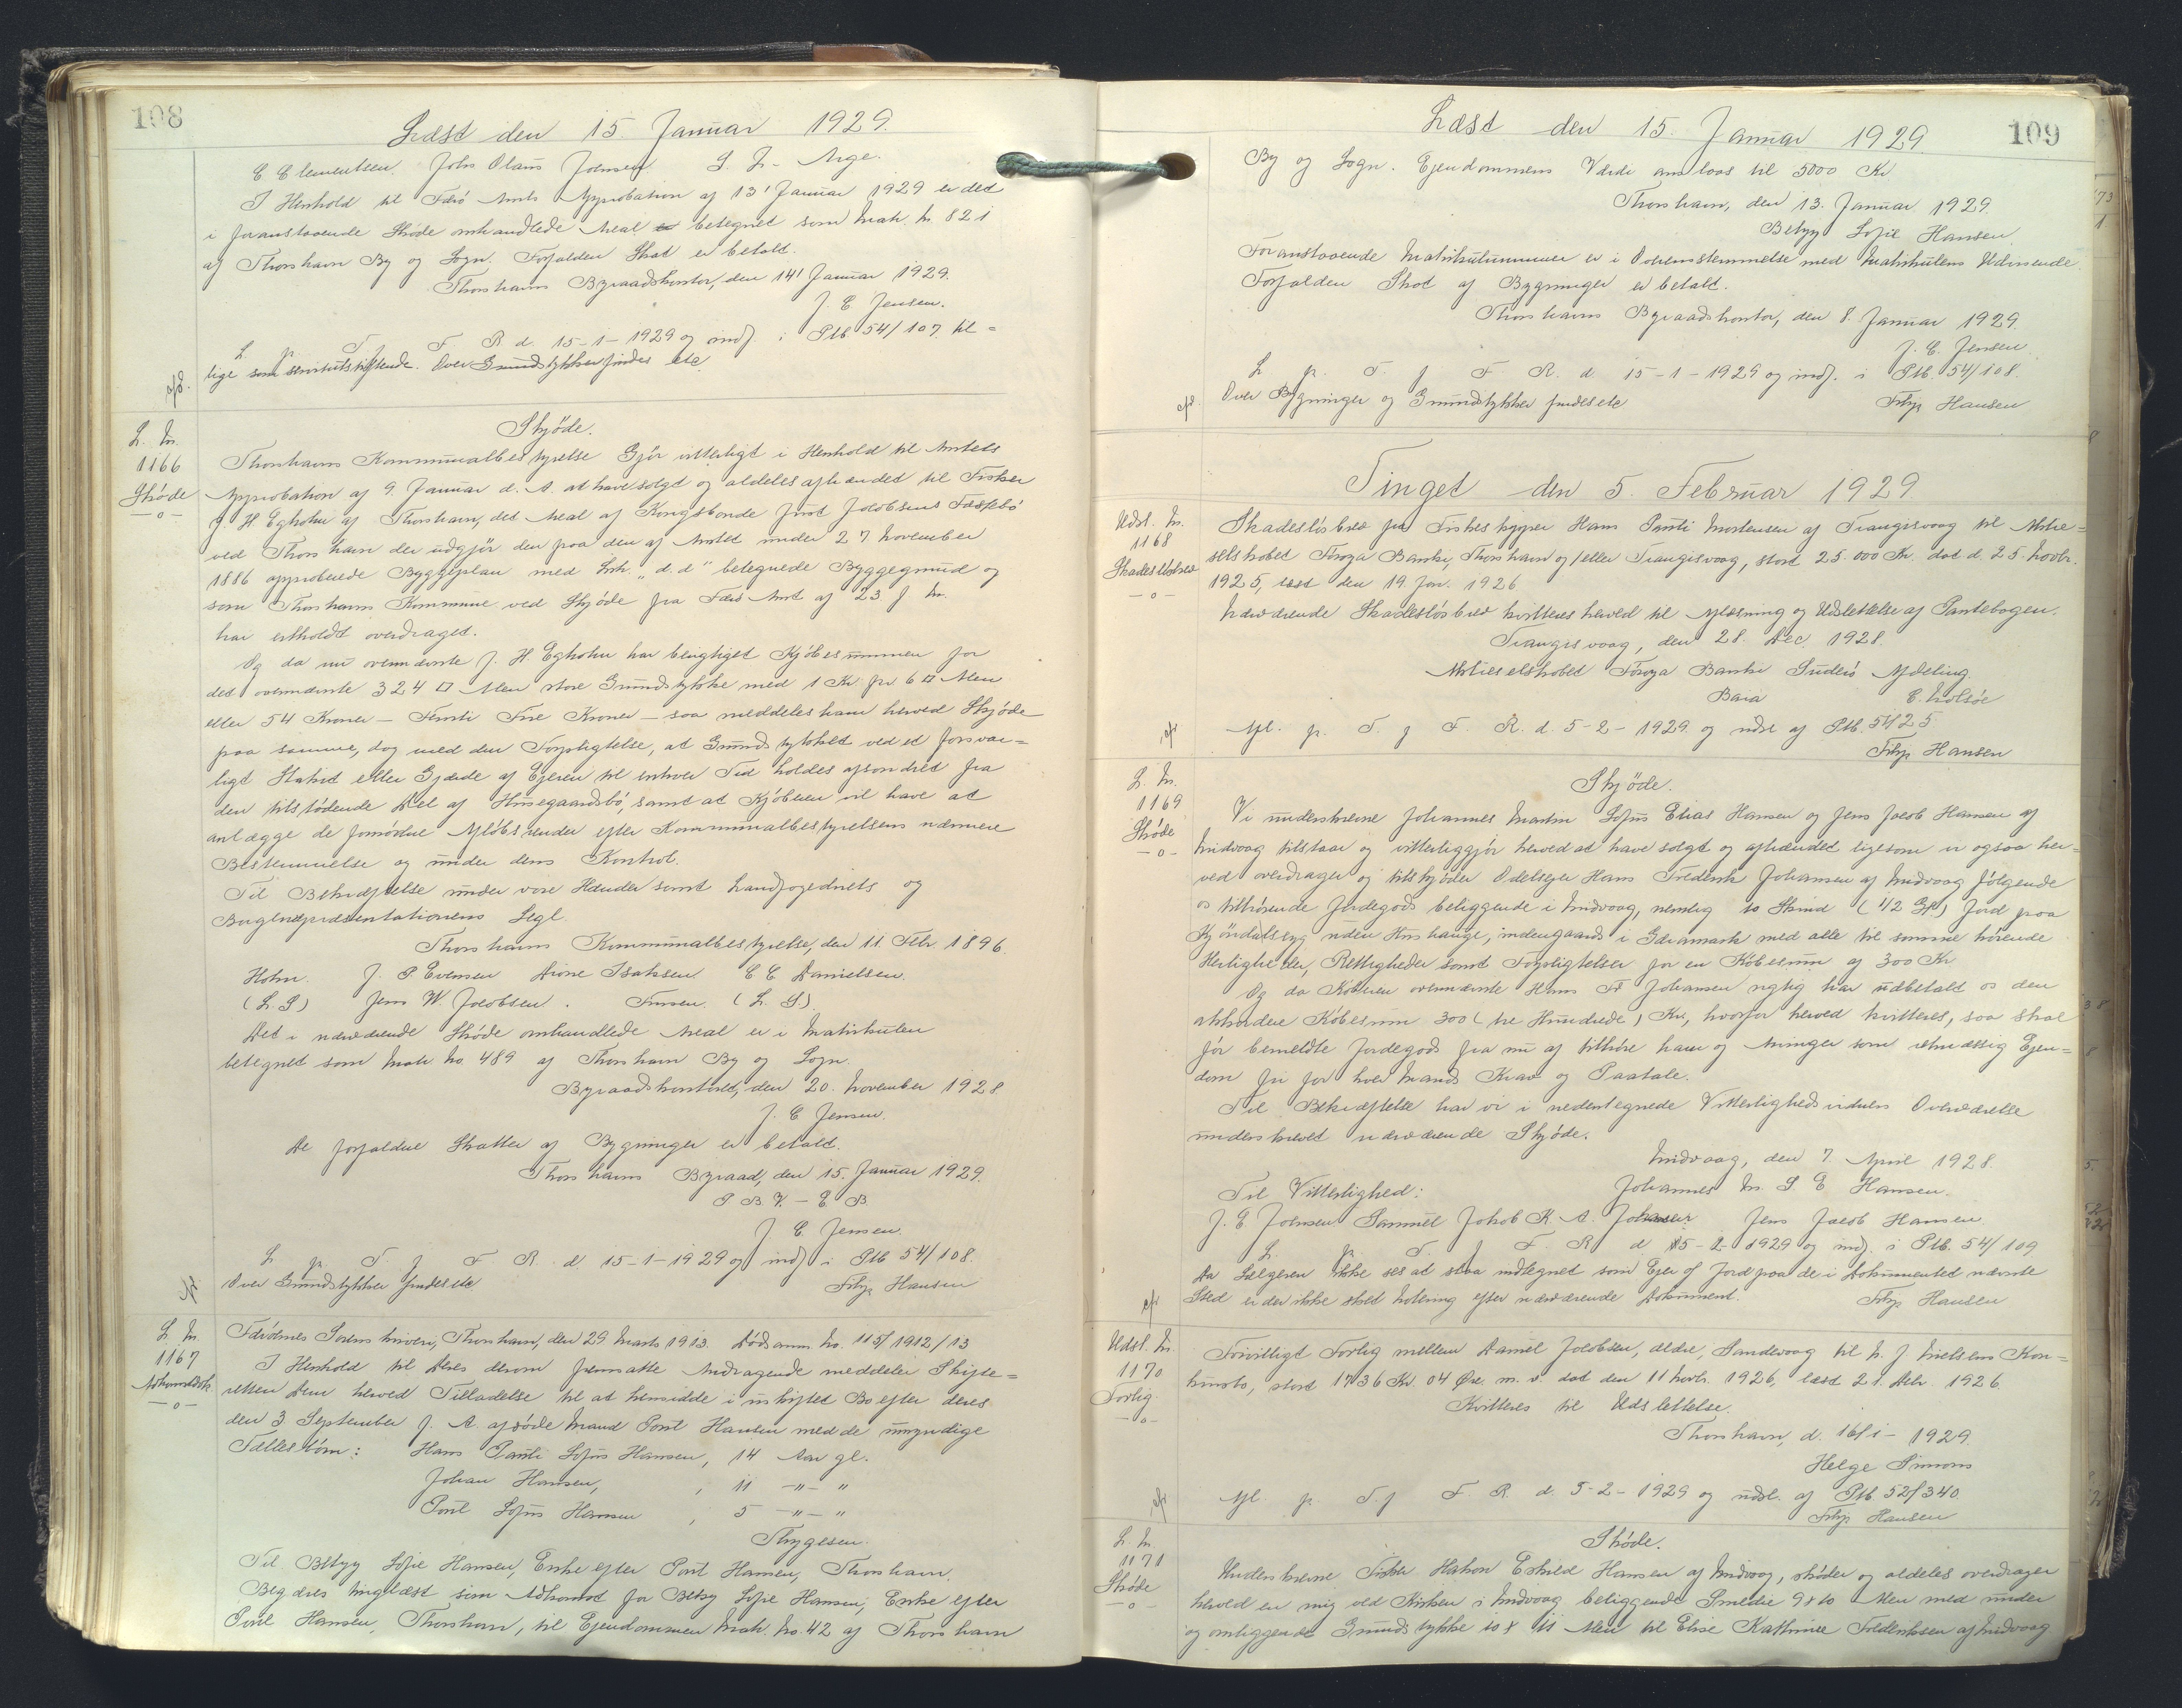 108
Læst den 15 Januar 1929.
C Clementsen. John Olaus Joensen. S. J. Arge.
I Henhold til Færø Amts Approbation af 13' Januar 1929 er det
i foranstaaende Skøde omhandlede Areal betegnet som Matr. Nr 821
af Thorshavn By og Sogn. Forfalden Skat er betalt.
Thorshavns Byraadskontor, den 14' Januar 1929.
J. C. Jensen.
L. p. T. f. F. R. d. 15-1-1929 og indf. i Ptb. 54/107 til=
lige som servitutstiftende. Over Grundstykker findes etc.
L. Nr.
1166
Skøde
—o—
Skjøde.
Thorshavns Kommunalbestyrelse Gjør vitterligt i Henhold til Amtets
Approbation af 9. Januar d. A. at have solgt og aldeles afhændet til Fisker
J. H. Egholm af Thorshavn, det Areal af Kongsbonde Just Jacobsens Fæstebø
ved Thorshavn der udgjør den paa den af Amtet under 27 November
1886 approberede Byggeplan med Litr. "d. d" betegnede Byggegrund og
som Thorshavns Kommune ved Skjøde fra Færø Amt af 23 f. M.
har erholdt overdraget.
Og da nu ovennævnte J. H. Egholm har berigtiget Kjøbesummen for
det ovennævnte 324 □ Alen store Grundstykke med 1 Kr. pr. 6 □ Alen
eller 54 Kroner — Femti Fire Kroner — saa meddeles ham herved Skjøde
paa samme, dog med den Forpligtelse, at Grundstykket ved et forsvar=
ligt Stakit eller Gjærde af Ejeren til enhver Tid holdes afsondret fra
den tilstødende Del af Husegaardsbø, samt at Kjøberen vil have at
anlægge de fornødne Afløbsrender efter Kommunalbestyrelsens nærmere
Bestemmelse og under dens Kontrol.
Til Bekræftelse under vore Hænder samt Landfogedriets og
Borgerrepræsentationens Segl.
Thorshavns Kommunalbestyrelse, den 11. Febr. 1896.
Holm. J. P Evensen Dione Isaksen C C Danielsen.
(L. S) Jens W. Jacobsen. Finsen. (L. S).
Det i nærværende Skøde omhandlede Areal er i Matrikulen
betegnet som Matr. No. 489 af Thorshavn By og Sogn.
Byraadskontoret, den 20. November 1928
J. C Jensen.
De forfaldne Skatter af Bygninger er betalt.
Thorshavns Byraad, den 15. Januar 1929.
P B V — E B
J. C. Jensen.
L. p. T. f. F R. d. 15-1-1929 og indf i Ptb 54/108.
Over Grundstykker findes etc
Filip Hansen
L. Nr.
1167
Adkomstdok.
—o—
Færøernes Sorenskriveri, Thorshavn, den 29 Marts 1913. Dødsanm. No. 115/1912/13
I Henhold til Deres derom fremsatte Andragende meddeler Skifte=
retten Dem herved Tilladelse til at hensidde i uskiftet Bo efter deres
den 3 September f. A. afdøde Mand Poul Hansen med de umyndige
Fællesbørn: Hans Pauli Sofus Hansen, 14 Aar gl.
Johan Hansen, , 11 —"— "
Poul Sofus Hansen , 5 —"— "
Thygesen.
Til Betzy Sofie Hansen, Enke efter Poul Hansen, Thorshavn.
Begæres tinglæst som Adkomst for Betzy Sofie Hansen, Enke efter
Poul Hansen, Thorshavn, til Ejendommen Matr. No. 42 af Thorshavn
109
Læst den 15. Januar 1929
By og Sogn. Ejendommens Værdi anslaas til 5000 Kr
Thorshavn, den 13. Januar 1929.
Betzy Sofie Hansen.
Foranstaaende Matrikulnummer er i Overensstemmelse med Matrikulens Udvisende
Forfalden Skat af Bygninger er betalt.
Thorshavns Byraadskontor, den 8. Januar 1929.
J. C. Jensen
L. p. T. f F. R. d. 15-1-1929 og indf. i Ptb. 54/108.
Over Bygninger og Grundstykker findes etc
Filip Hansen
Tinget den 5. Februar 1929
Udsl. Nr.
1168
Skadesløsbrev
—o—
Skadesløsbrev fra Fiskeskipper Hans Pauli Mortensen af Trangisvaag til Aktie=
selskabet Føroya Banki, Thorshavn og/eller Trangisvaag, stort 25.000 Kr. dat d. 25. Novbr.
1925, læst den 19 Jan. 1926
Nærværende Skadesløsbrev kvitteres herved til Aflæsning og Udslettelse af Pantebogen.
Trangisvaag, den 28. Dec. 1928.
Aktieselskabet Føroya Banki Suderø Afdeling.
Bara C. Holsøe
Afl. p. T. f F. R. d. 5-2-1929 og udsl af Ptb. 54/25
Filip Hansen
L. Nr.
1169
Skøde
—o—
Skjøde.
Vi underskrevne Johannes Martin Sofus Elias Hansen og Jens Jacob Hansen af
Midvaag tilstaar og vitterliggjør herved at have solgt og afhændet ligesom vi ogsaa her=
ved overdrager og tilskjøder Odelsejer Hans Fredrik Johansen af Midvaag følgende
os tilhørende Jordegods beliggende i Midvaag, nemlig to Skind (42 Gl) Jord paa
uden Hushauge, indengaards i med alle til samme hørende
Herligheder, Rettigheder samt Forpligtelser for en Købesum af 300 Kr
Og da Køberen ovennævnte Hans Fr Johansen rigtig har udbetalt os den
akkorderede Købesum 300 (tre Hundrede) Kr., hvorfor herved kvitteres, saa skal
før bemeldte Jordegods fra nu af tilhøre ham og Arvinger som retmæssig Ejen=
dom fri for hver Mands Krav og Paatale.
Til Bekræftelse har vi i nedentegnede Vitterlighedsvidners Overværelse
underskrevet nærværende Skjøde.
Midvaag, den 7. April 1928.
Til Vitterlighed: Johannes M. S. E Hansen.
J. E Joensen Samuel Jakob K. A. Johansen Jens Jacob Hansen.
L. p. T. f F. R. d 5-2-1929 og indf. i Ptb. 54/109
Da Sælgeren ikke ses at staa indtegnet som Ejer af Jord paa de i Dokumentet nævnte
Sted er der ikke sket Notering efter nærværende Dokument.
Filip Hansen
Udsl. Nr.
1170
Forlig.
—o—
Frivilligt Forlig mellem Daniel Jacobsen, ældre, Sandevaag til N. J. Nielsens Kon=
kursbo, stort 1736 Kr. 04 Øre m. v. dat den 11 Novbr. 1926, læst 21. Debr. 1926.
Kvitteres til Udslettelse.
Thorshavn, d. 16/1-1929.
Helge Simons
Afl. p. T. f F. R. d. 5-2-1929 og udsl. af Ptb. 52/340.
Filip Hansen
L. Nr.
1171
Skøde
—o—
Skøde.
Underskrevne Fisker Hakon Eskild Hansen af Midvaag, skøder og aldeles overdrager
herved en mig ved Kirken i Midvaag beliggende Smedie 9 x 10 Alen med under
og omliggende Grundstykke 10 x 11 Alen til Elise Kathrine Frederiksen af Midvaag